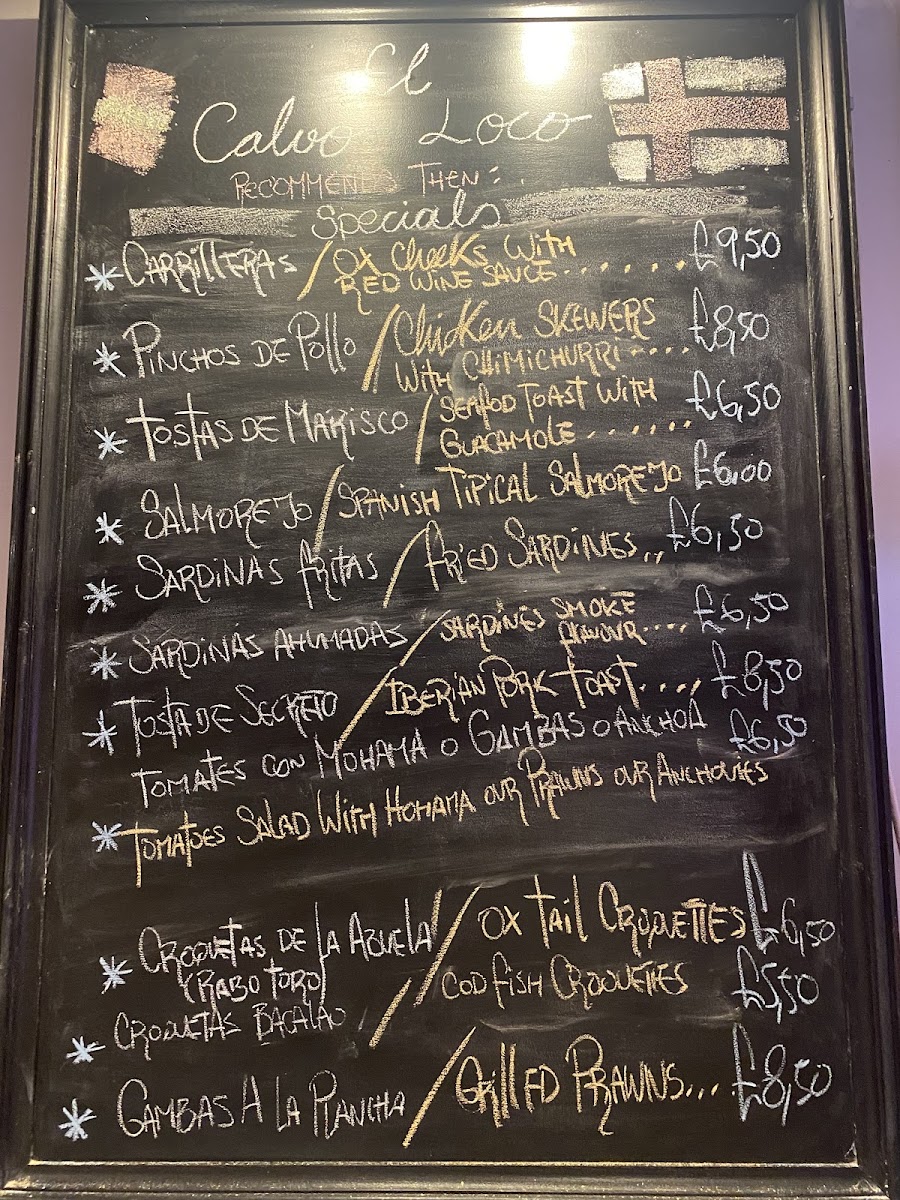 El
Calvo Loco
RECOMMENDS THEN:
Specials
* CARRILLERAS / OX Cheeks WITH
RED WINE SAUCE...... £9,50
* PINCHOS DE POLLO / Chicken SKEWERS
WITH CHIMICHURRI.... £8,50
* TOSTAS DE MARISCO / SEAFOD TOAST WITH
GUACAMOLE....... £6,50
* SALMOREJO / SPANISH TIPICAL SALMOREJO £6,00
* SARDINAS FRITAS / FRIED SARDINES.. £6,50
* SARDINAS AHUMADAS / SARDINES SMOKE
FLAVOUR.... £6,50
* TOSTA DE SECRETO / IBERIAN PORK TOAST.... £8,50
TOMATES CON MOHAMA O GAMBAS O ANCHOA £6,50
* TOMATOES SALAD WITH MOHAMA OUR PRAWNS OUR ANCHOVIES
* CROQUETAS DE LA ABUELA / OX TAIL CROQUETTES £6,50
(RABO TORO)
* CROQUETAS BACALAO / COD FISH CROQUETTES £5,50
* GAMBAS A LA PLANCHA / GRILLED PRAWNS... £8,50